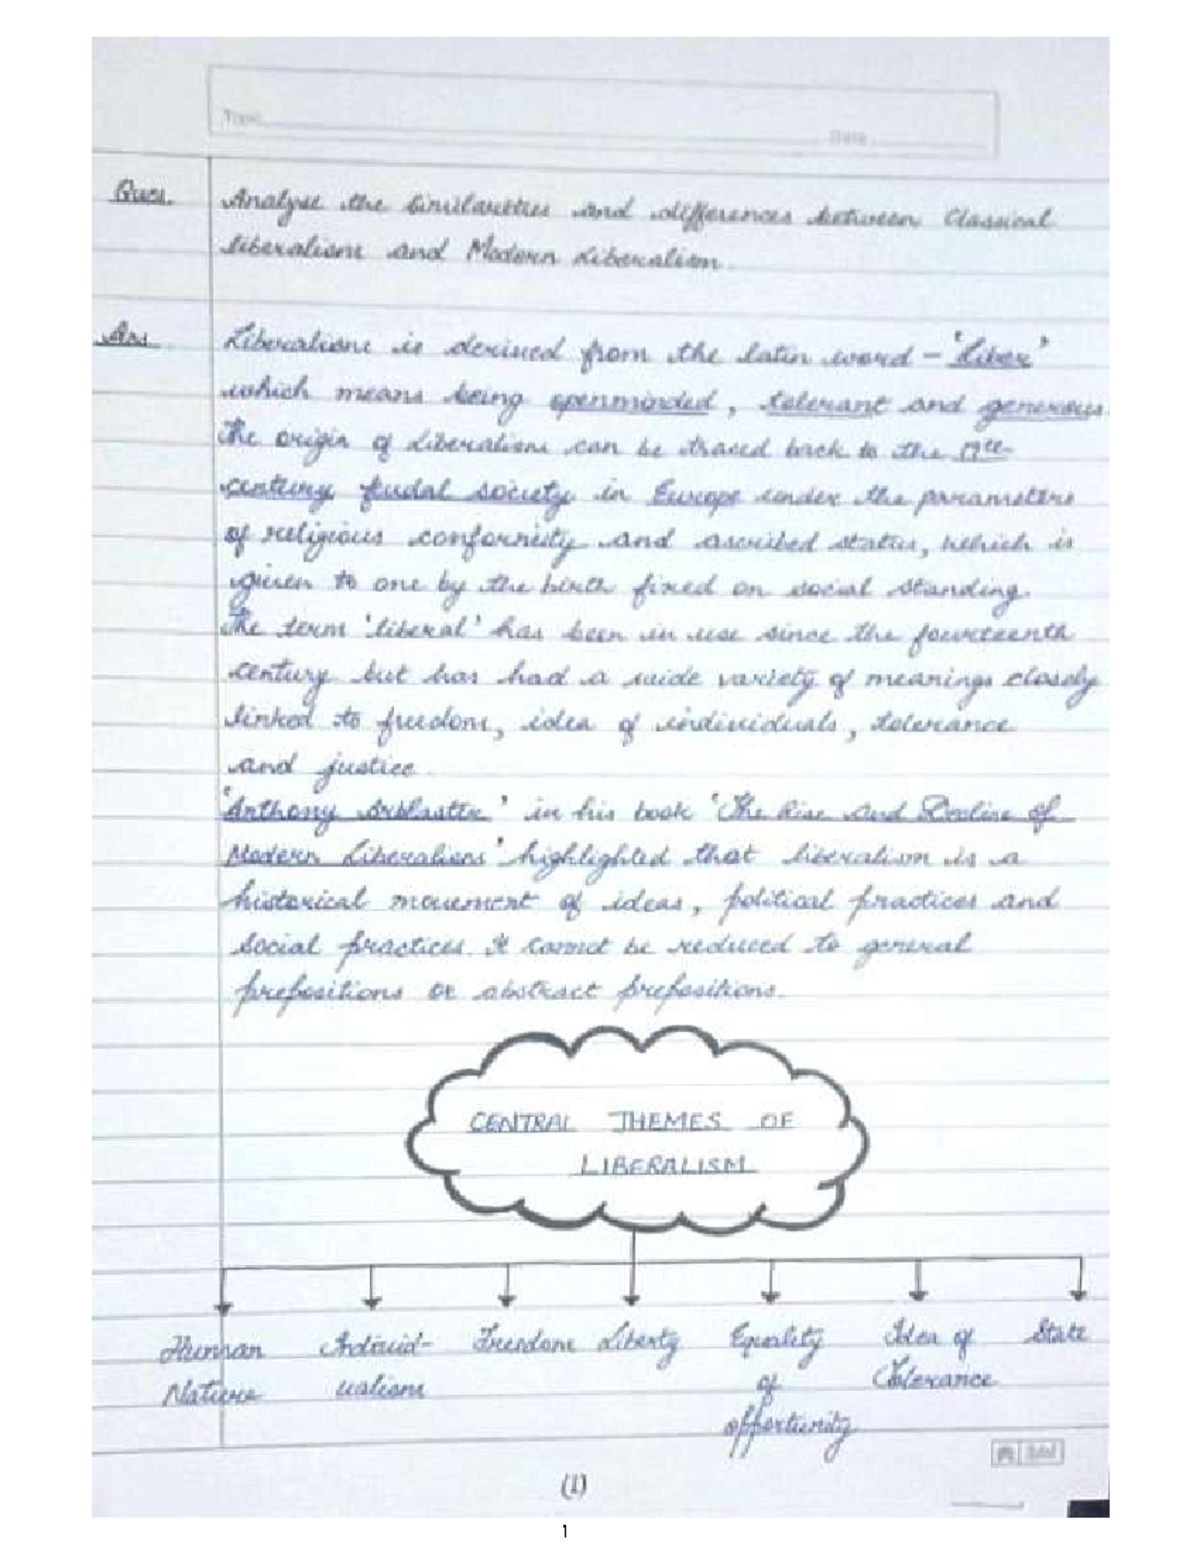 Topic Date
Ques. Analyse the similarities and differences between Classical
liberalism and Modern Liberalism.
Ans Liberalism is derived from the latin word – 'Liber'
which means being openminded, tolerant and generous.
The origin of Liberalism can be traced back to the
century feudal society in Europe under the parameters
of religious conformity and ascribed status, which is
given to one by the birth fixed on social standing.
The term 'liberal' has been in use since the fourteenth
century but has had a wide variety of meanings closely
linked to freedom, idea of individuals, tolerance
and justice.
'Anthony Arblaster' in his book 'The Rise and Decline of
Modern Liberalism' highlighted that liberalism is a
historical movement of ideas, political practices and
social practices. It cannot be reduced to general
prepositions or abstract prepositions.
CENTRAL THEMES OF
LIBERALISM
Human Individ- Freedom Liberty Equality Idea of State
Nature ualism of Tolerance
opportunity
(1)
1